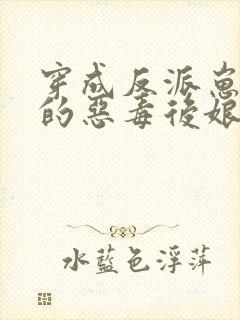 穿成反派崽
的惡毒後娘
水藍色浮萍